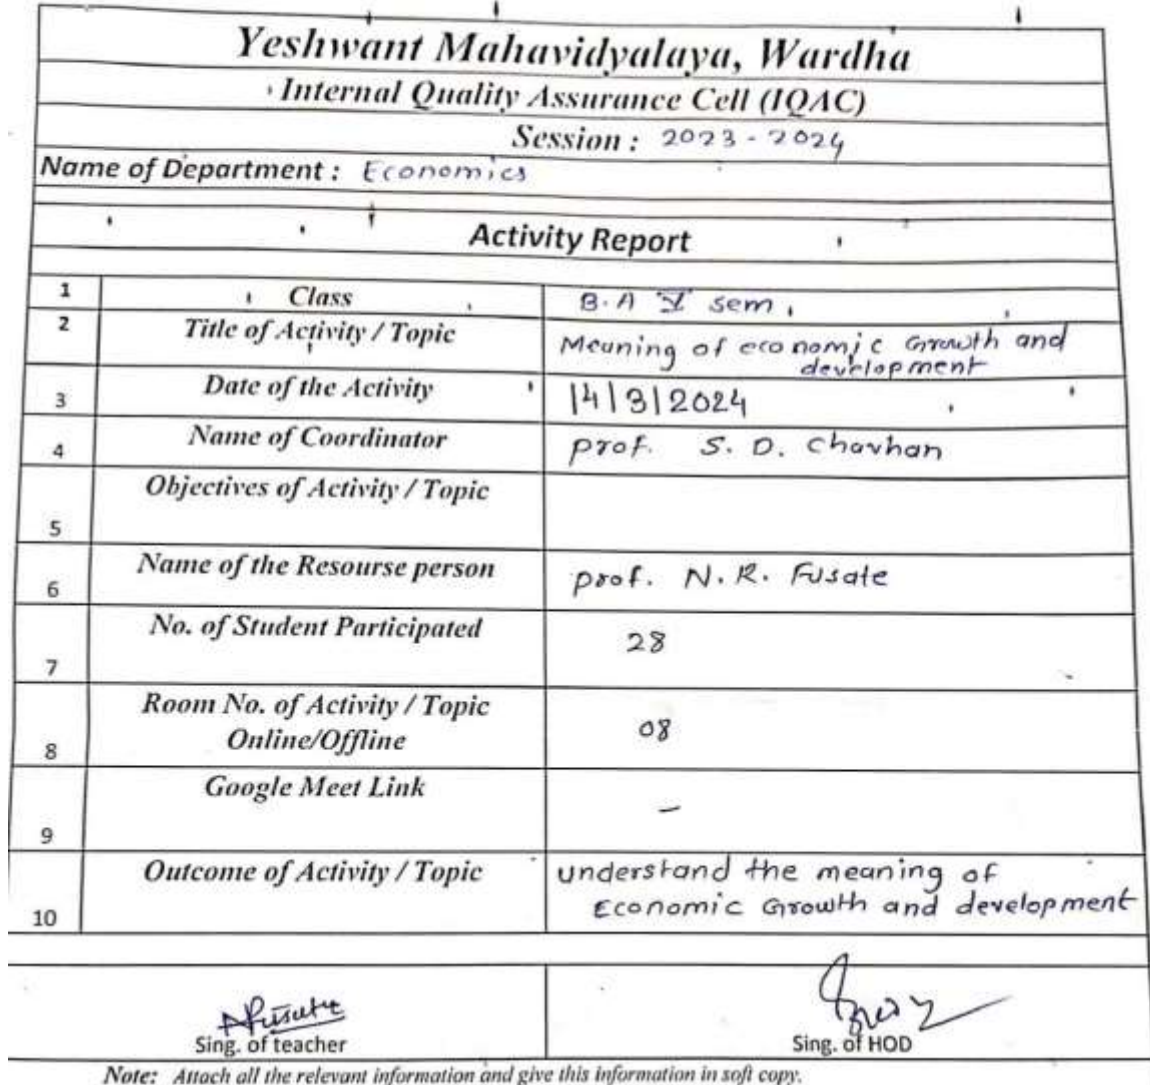 Yeshwant Mahavidyalaya, Wardha
Internal Quality Assurance Cell (IQAC)
Session : 2023 - 2024
Name of Department : Economics
Activity Report
1 Class B.A V sem
2 Title of Activity / Topic Meaning of economic Growth and
development
3 Date of the Activity 14|3|2024
4 Name of Coordinator prof. S. D. Chavhan
5 Objectives of Activity / Topic
6 Name of the Resourse person prof. N. R. Fusate
7 No. of Student Participated 28
8 Room No. of Activity / Topic
Online/Offline 08
9 Google Meet Link -
10 Outcome of Activity / Topic understand the meaning of
Economic Growth and development
Sing. of teacher Sing. of HOD
Note: Attach all the relevant information and give this information in soft copy.